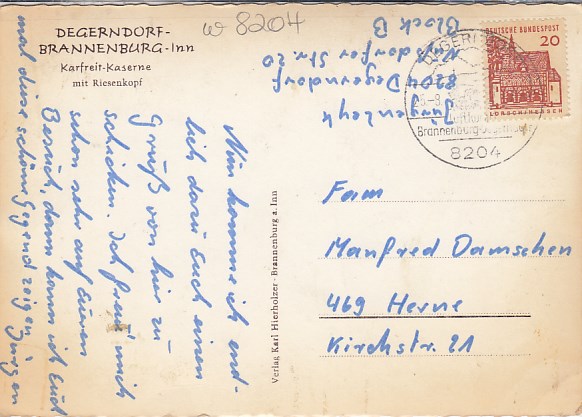 DEGERNDORF-
BRANNENBURG-Inn
Karfreit-Kaserne
mit Riesenkopf
W 8204
8204 Degerndorf
Block B
DEUTSCHE BUNDESPOST
20
LORSCH/HESSEN
DEGERNDORF
Brannenburg-Degerndorf
8204
Nun komme ich end-
lich dazu Euch einen
Gruß von hier zu
schicken. Ich freu' mich
schon sehr auf Euren
Besuch, dann kann ich Euch
mal diese schöne Gegend zeigen
Jürgen
Verlag Karl Hierholzer · Brannenburg a. Inn
Fam
Manfred Damschen
469 Herne
Kirchstr. 21